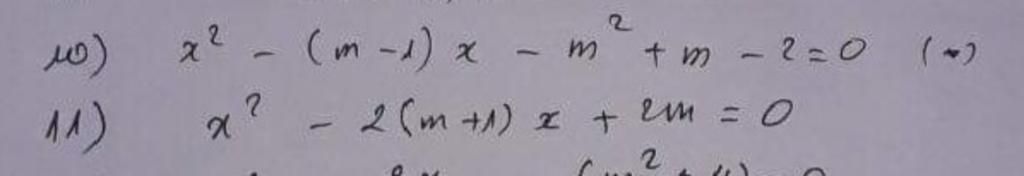 10) x² - (m - 1) x - m² + m - 2 = 0 (*)
11) x² - 2(m + 1) x + 2m = 0